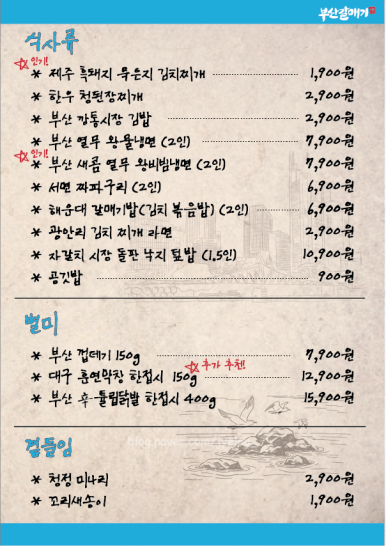 부산갈매기
식사류
인기!
* 제주 흑돼지 묵은지 김치찌개 1,900원
* 한우 청된장찌개 2,900원
* 부산 깡통시장 김밥 2,900원
* 부산 열무 왕물냉면 (2인) 7,900원
인기!
* 부산 새콤 열무 왕비빔냉면 (2인) 7,900원
* 서면 짜파구리 (2인) 6,900원
* 해운대 갈매기밥(김치 볶음밥) (2인) 6,900원
* 광안리 김치 찌개 라면 2,900원
* 자갈치 시장 돌판 낙지 덮밥 (1.5인) 10,900원
* 공깃밥 900원
별미
* 부산 껍데기 150g 7,900원
추가 추천!
* 대구 훈연막창 한접시 150g 12,900원
* 부산 후-튤립닭발 한접시 400g 15,900원
곁들임
* 청정 미나리 2,900원
* 꼬리새송이 1,900원